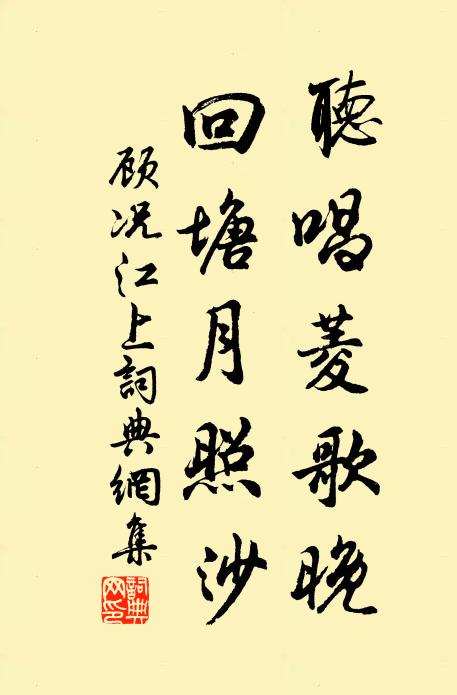 聽唱菱歌晚
回塘月照沙
顾况江上詞典網集
詞典網印